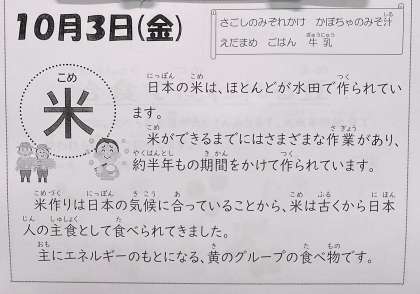 10月3日(金)
さごしのみぞれかけ　かぼちゃのみそ汁
えだまめ　ごはん　牛乳
米
日本の米は、ほとんどが水田で作られてい
ます。
米ができるまでにはさまざまな作業があり、
約半年もの期間をかけて作られています。
米作りは日本の気候に合っていることから、米は古くから日本
人の主食として食べられてきました。
主にエネルギーのもとになる、黄のグループの食べ物です。